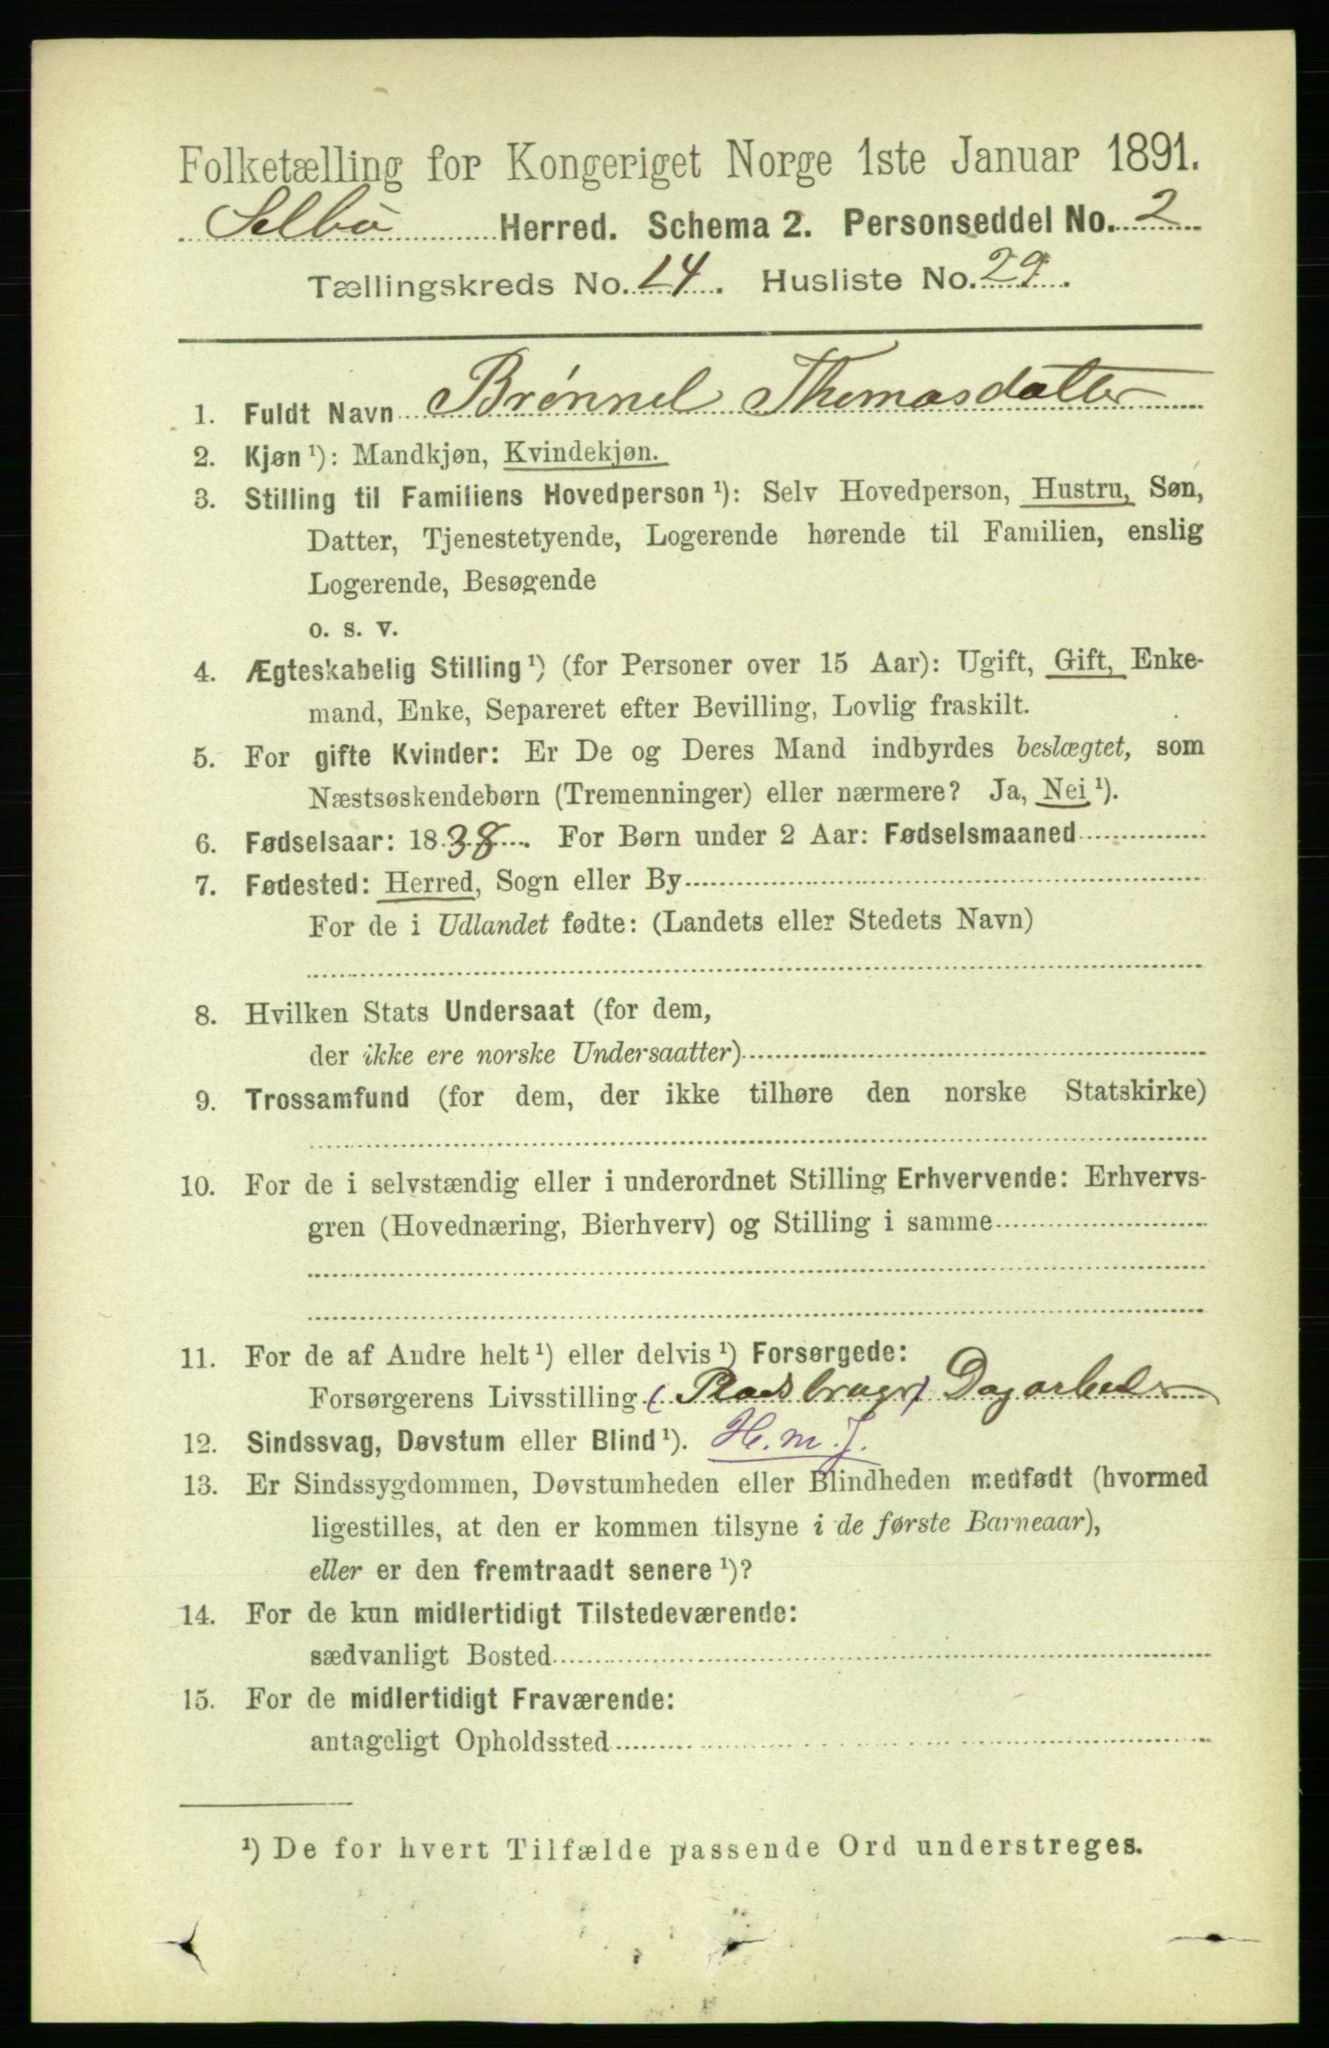 Folketælling for Kongeriget Norge 1ste Januar 1891.
Selbu Herred. Schema 2. Personseddel No. 2
Tællingskreds No. 14. Husliste No. 29.
1. Fuldt Navn Brønnel Thomasdatter
2. Kjøn ¹): Mandkjøn, Kvindekjøn.
3. Stilling til Familiens Hovedperson ¹): Selv Hovedperson, Hustru, Søn,
Datter, Tjenestetyende, Logerende hørende til Familien, enslig
Logerende, Besøgende
o. s. v.
4. Ægteskabelig Stilling ¹) (for Personer over 15 Aar): Ugift, Gift, Enke-
mand, Enke, Separeret efter Bevilling, Lovlig fraskilt.
5. For gifte Kvinder: Er De og Deres Mand indbyrdes beslægtet, som
Næstsøskendebørn (Tremenninger) eller nærmere? Ja, Nei ¹).
6. Fødselsaar: 1838. For Børn under 2 Aar: Fødselsmaaned
7. Fødested: Herred, Sogn eller By
For de i Udlandet fødte: (Landets eller Stedets Navn)
8. Hvilken Stats Undersaat (for dem,
der ikke ere norske Undersaatter)
9. Trossamfund (for dem, der ikke tilhøre den norske Statskirke)
10. For de i selvstændig eller i underordnet Stilling Erhvervende: Erhvervs-
gren (Hovednæring, Bierhverv) og Stilling i samme
11. For de af Andre helt ¹) eller delvis ¹) Forsørgede:
Forsørgerens Livsstilling (Pladsbruger) Dagarbeder
12. Sindssvag, Døvstum eller Blind ¹). H. m. J.
13. Er Sindssygdommen, Døvstumheden eller Blindheden medfødt (hvormed
ligestilles, at den er kommen tilsyne i de første Barneaar),
eller er den fremtraadt senere ¹)?
14. For de kun midlertidigt Tilstedeværende:
sædvanligt Bosted
15. For de midlertidigt Fraværende:
antageligt Opholdssted
¹) De for hvert Tilfælde passende Ord understreges.